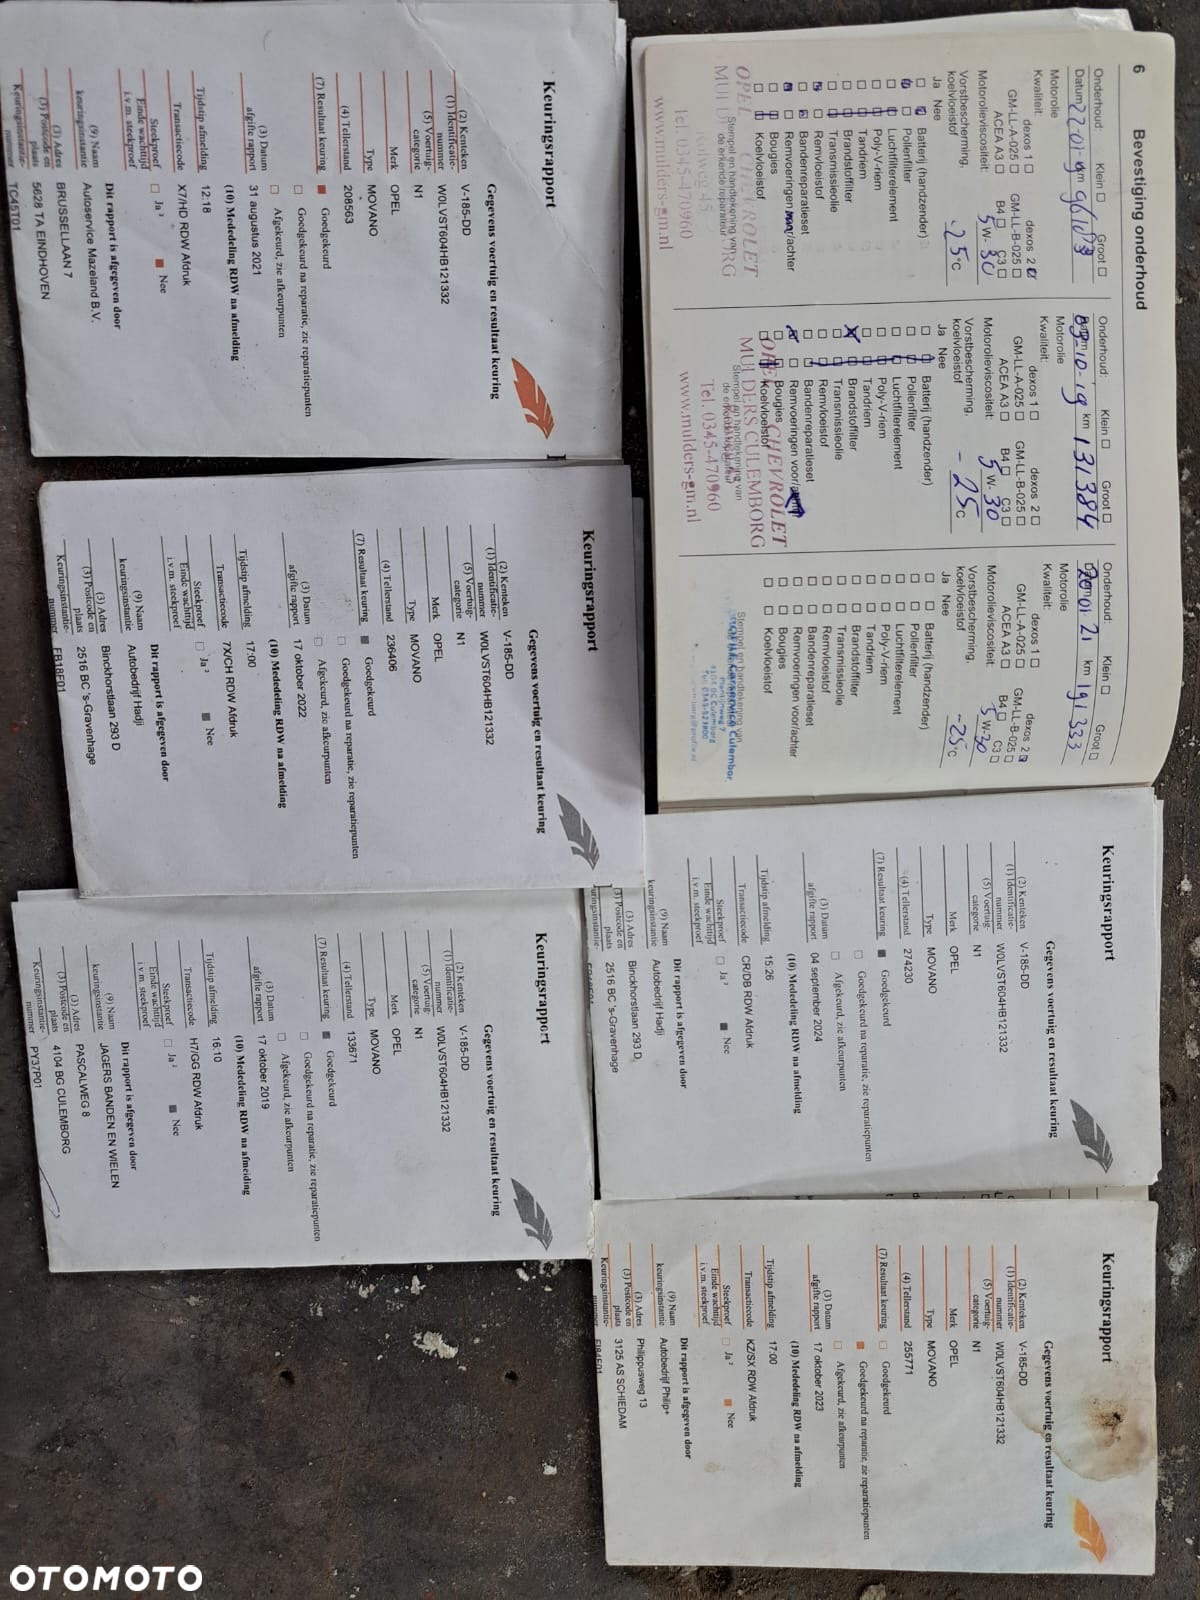 Keuringsrapport
Gegevens voertuig en resultaat keuring
(2) Kenteken V-185-DD
(1) Identificatie-
nummer W0LVST604HB121332
(5) Voertuig-
categorie N1
Merk OPEL
Type MOVANO
(4) Tellerstand 208563
(7) Resultaat keuring ■ Goedgekeurd
□ Goedgekeurd na reparatie, zie reparatiepunten
□ Afgekeurd, zie afkeurpunten
(3) Datum
afgifte rapport 31 augustus 2021
(10) Mededeling RDW na afmelding
Tijdstip afmelding 12:18
Transactiecode X7/HD RDW Afdruk
Steekproef □ Ja ² ■ Nee
Einde wachttijd
i.v.m. steekproef
Dit rapport is afgegeven door
(9) Naam
keuringsinstantie Autoservice Mazeland B.V.
(3) Adres BRUSSELLAAN 7
(3) Postcode en
plaats 5628 TA EINDHOVEN
Keuringsinstantie-
nummer TC45T01
6 Bevestiging onderhoud
Onderhoud: Klein □ Groot □
Datum 22-01- km
Motorolie
Kwaliteit: dexos 1 □ dexos 2
GM-LL-A-025 □ GM-LL-B-025 □
ACEA A3 □ B4 □ C3 □
Motorolieviscositeit: 5 W- 30
Vorstbescherming,
koelvloeistof -25 °C
Ja Nee
Batterij (handzender)
Pollenfilter
Luchtfilterelement
Poly-V-riem
Tandriem
Brandstoffilter
Transmissieolie
Remvloeistof
Bandenreparatieset
Remvoeringen voor/achter
Bougies
Koelvloeistof
Stempel en handtekening van
de erkende reparateur
OPEL CHEVROLET
Tel. 0345-470960
www.mulders-gm.nl
Onderhoud: Klein □ Groot □
Datum 03-10-19 km 131384
Motorolie
Kwaliteit: dexos 1 □ dexos 2 □
GM-LL-A-025 □ GM-LL-B-025 □
ACEA A3 □ B4 □ C3 □
Motorolieviscositeit: 5 W- 30
Vorstbescherming,
koelvloeistof -25 °C
Ja Nee
Batterij (handzender)
Pollenfilter
Luchtfilterelement
Poly-V-riem
Tandriem
Brandstoffilter
Transmissieolie
Remvloeistof
Bandenreparatieset
Remvoeringen voor/
Bougies
Koelvloeistof
Stempel en handtekening van
OPEL CHEVROLET
MULDERS CULEMBORG
Tel. 0345-470960
www.mulders-gm.nl
Onderhoud: Klein □ Groot □
20-01-21 km 191333
Motorolie
Kwaliteit: dexos 1 □ dexos 2
GM-LL-A-025 □ GM-LL-B-025 □
ACEA A3 □ B4 □ C3 □
Motorolieviscositeit: 5 W- 30
Vorstbescherming,
koelvloeistof -25 °C
Ja Nee
□ □ Batterij (handzender)
□ □ Pollenfilter
□ □ Luchtfilterelement
□ □ Poly-V-riem
□ □ Tandriem
□ □ Brandstoffilter
□ □ Transmissieolie
□ □ Remvloeistof
□ □ Bandenreparatieset
□ □ Remvoeringen voor/achter
□ □ Bougies
□ □ Koelvloeistof
Stempel en handtekening van
Keuringsrapport
Gegevens voertuig en resultaat keuring
(2) Kenteken V-185-DD
(1) Identificatie-
nummer W0LVST604HB121332
(5) Voertuig-
categorie N1
Merk OPEL
Type MOVANO
(4) Tellerstand 236406
(7) Resultaat keuring ■ Goedgekeurd
□ Goedgekeurd na reparatie, zie reparatiepunten
□ Afgekeurd, zie afkeurpunten
(3) Datum
afgifte rapport 17 oktober 2022
(10) Mededeling RDW na afmelding
Tijdstip afmelding 17:00
Transactiecode 7X/CH RDW Afdruk
Steekproef □ Ja ² ■ Nee
Einde wachttijd
i.v.m. steekproef
Dit rapport is afgegeven door
(9) Naam
keuringsinstantie Autobedrijf Hadji
(3) Adres Binckhorstlaan 293 D
(3) Postcode en
plaats 2516 BC 's-Gravenhage
Keuringsinstantie-
nummer
Keuringsrapport
Gegevens voertuig en resultaat keuring
(2) Kenteken V-185-DD
(1) Identificatie-
nummer W0LVST604HB121332
(5) Voertuig-
categorie N1
Merk OPEL
Type MOVANO
(4) Tellerstand 274230
(7) Resultaat keuring ■ Goedgekeurd
□ Goedgekeurd na reparatie, zie reparatiepunten
□ Afgekeurd, zie afkeurpunten
(3) Datum
afgifte rapport 04 september 2024
(10) Mededeling RDW na afmelding
Tijdstip afmelding 15:26
Transactiecode CR/DB RDW Afdruk
Steekproef □ Ja ² ■ Nee
Einde wachttijd
i.v.m. steekproef
Dit rapport is afgegeven door
(9) Naam
keuringsinstantie Autobedrijf Hadji
(3) Adres Binckhorstlaan 293 D
(3) Postcode en
plaats 2516 BC 's-Gravenhage
Keuringsrapport
Gegevens voertuig en resultaat keuring
(2) Kenteken V-185-DD
(1) Identificatie-
nummer W0LVST604HB121332
(5) Voertuig-
categorie N1
Merk OPEL
Type MOVANO
(4) Tellerstand 133671
(7) Resultaat keuring ■ Goedgekeurd
□ Goedgekeurd na reparatie, zie reparatiepunten
□ Afgekeurd, zie afkeurpunten
(3) Datum
afgifte rapport 17 oktober 2019
(10) Mededeling RDW na afmelding
Tijdstip afmelding 16:10
Transactiecode H7/GG RDW Afdruk
Steekproef □ Ja ² ■ Nee
Einde wachttijd
i.v.m. steekproef
Dit rapport is afgegeven door
(9) Naam
keuringsinstantie JAGERS BANDEN EN WIELEN
(3) Adres PASCALWEG 8
(3) Postcode en
plaats 4104 BG CULEMBORG
Keuringsinstantie-
nummer PY37P01
Keuringsrapport
Gegevens voertuig en resultaat keuring
(2) Kenteken V-185-DD
(1) Identificatie-
nummer W0LVST604HB121332
(5) Voertuig-
categorie N1
Merk OPEL
Type MOVANO
(4) Tellerstand 255771
(7) Resultaat keuring □ Goedgekeurd
■ Goedgekeurd na reparatie, zie reparatiepunten
□ Afgekeurd, zie afkeurpunten
(3) Datum
afgifte rapport 17 oktober 2023
(10) Mededeling RDW na afmelding
Tijdstip afmelding 17:00
Transactiecode KZ/SX RDW Afdruk
Steekproef □ Ja ² ■ Nee
Einde wachttijd
i.v.m. steekproef
Dit rapport is afgegeven door
(9) Naam
keuringsinstantie Autobedrijf Philip+
(3) Adres Philippusweg 13
(3) Postcode en
plaats 3125 AS SCHIEDAM
Keuringsinstantie-
OTOMOTO